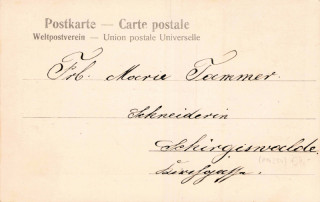 Postkarte — Carte postale
Weltpostverein — Union postale Universelle
Frl. Marie Tammer.
Schneiderin
Schirgiswalde.